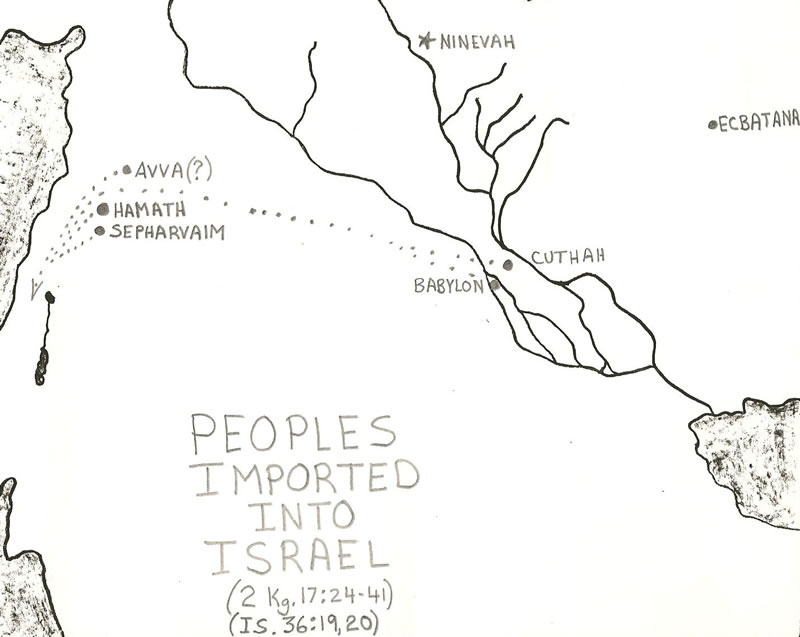 NINEVAH
ECBATANA
AVVA(?)
HAMATH
SEPHARVAIM
CUTHAH
BABYLON
PEOPLES
IMPORTED
INTO
ISRAEL
(2 Kg. 17:24-41)
(IS. 36:19,20)